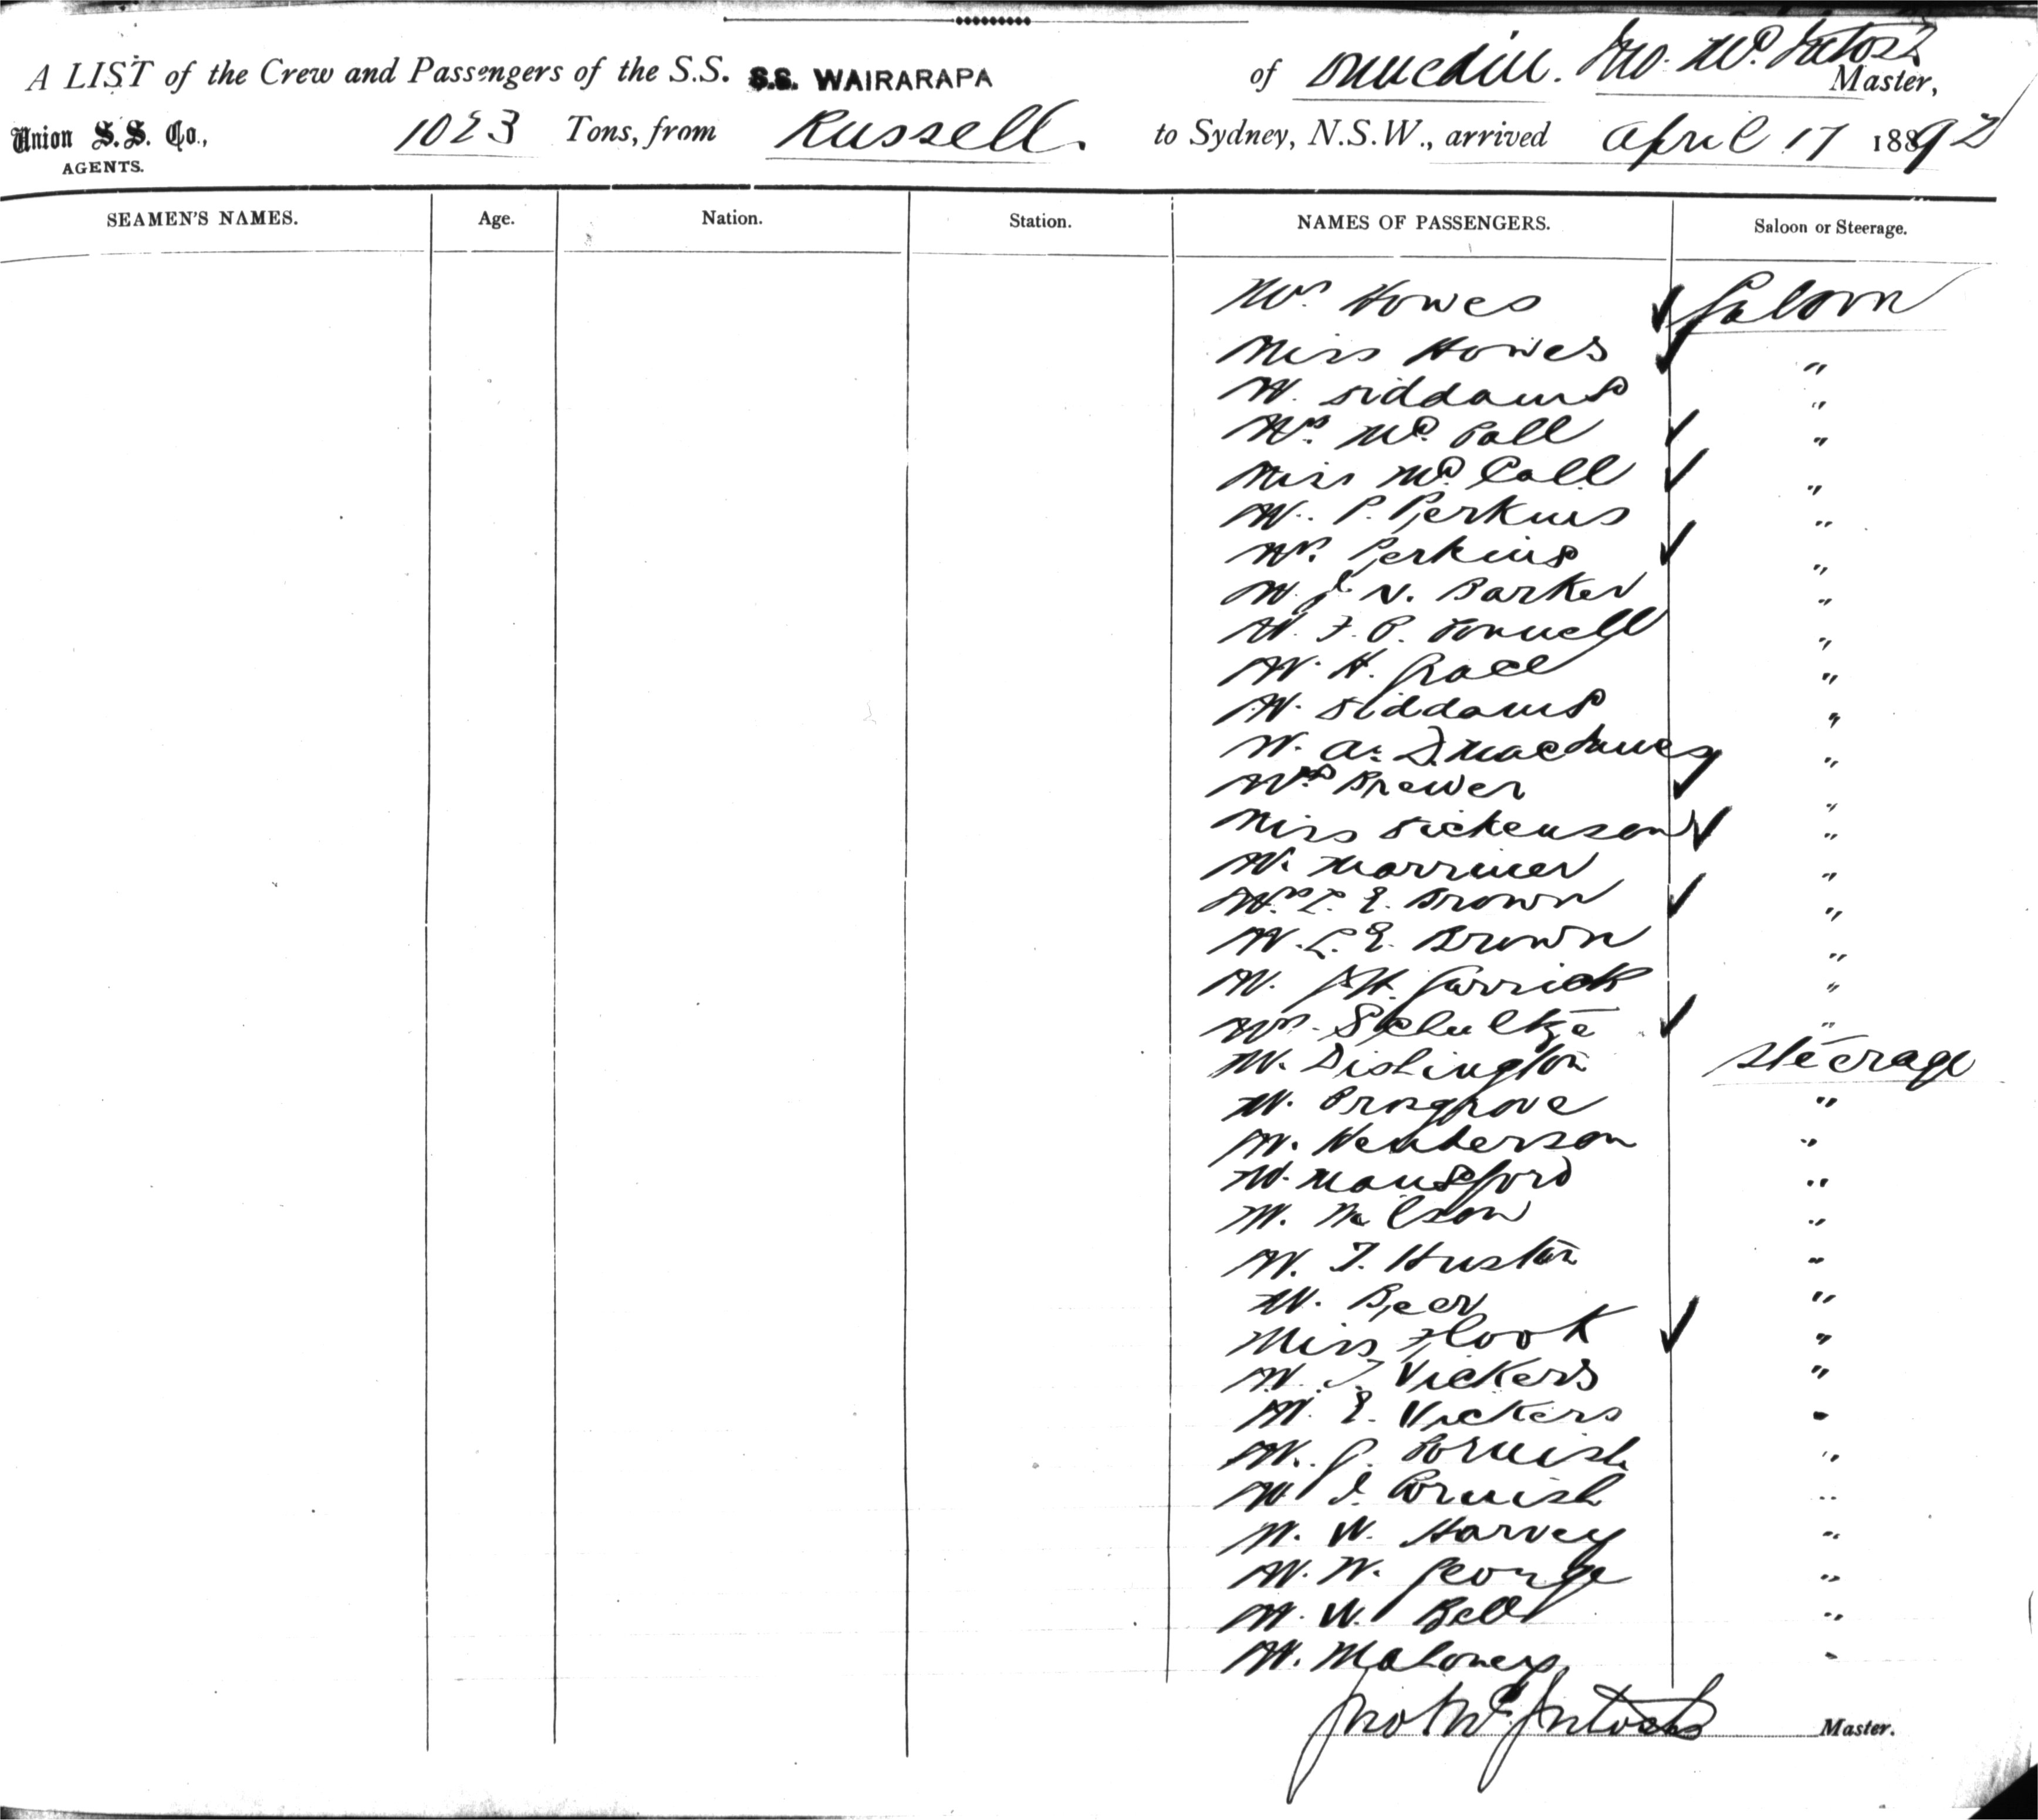 A LIST of the Crew and Passengers of the S.S. S.S. WAIRARAPA of Dunedin. Jno. McIntosh Master,
Union S.S. Co., 1023 Tons, from Russell. to Sydney, N.S.W., arrived April 17 1892
AGENTS.
SEAMEN'S NAMES. Age. Nation. Station. NAMES OF PASSENGERS. Saloon or Steerage.
Mrs Howes ✓ Saloon
Miss Howes ✓ "
Mr. Siddams "
Mrs. McCall ✓ "
Miss McCall ✓ "
Mr. P. Perkins "
Mrs. Perkins ✓ "
Mr. J. N. Barker "
Mr. F. P. "
Mr. H. Grace "
Mr. Siddams "
Mr. A. "
Mrs Brewer ✓ "
Miss Dickenson ✓ "
Mr. Marriner "
Mrs. L. E. Brown ✓ "
Mr. L. E. Brown "
Mr. Garrick "
Mrs. Schultze ✓ "
Mr. Dislington Steerage
Mr. Prosgrove "
Mr. Henderson "
Mr. Mansford "
Mr. "
Mr. T. Huston "
Mr. Beer "
Miss Flook ✓ "
Mr. T. Vickers "
Mr. E. Vickers "
Mr. J. Cornish "
Mr I. Cornish "
Mr. W. Harvey "
Mr. W. George "
Mr. W. Bell "
Mr. Maloney "
Jno McIntosh Master.